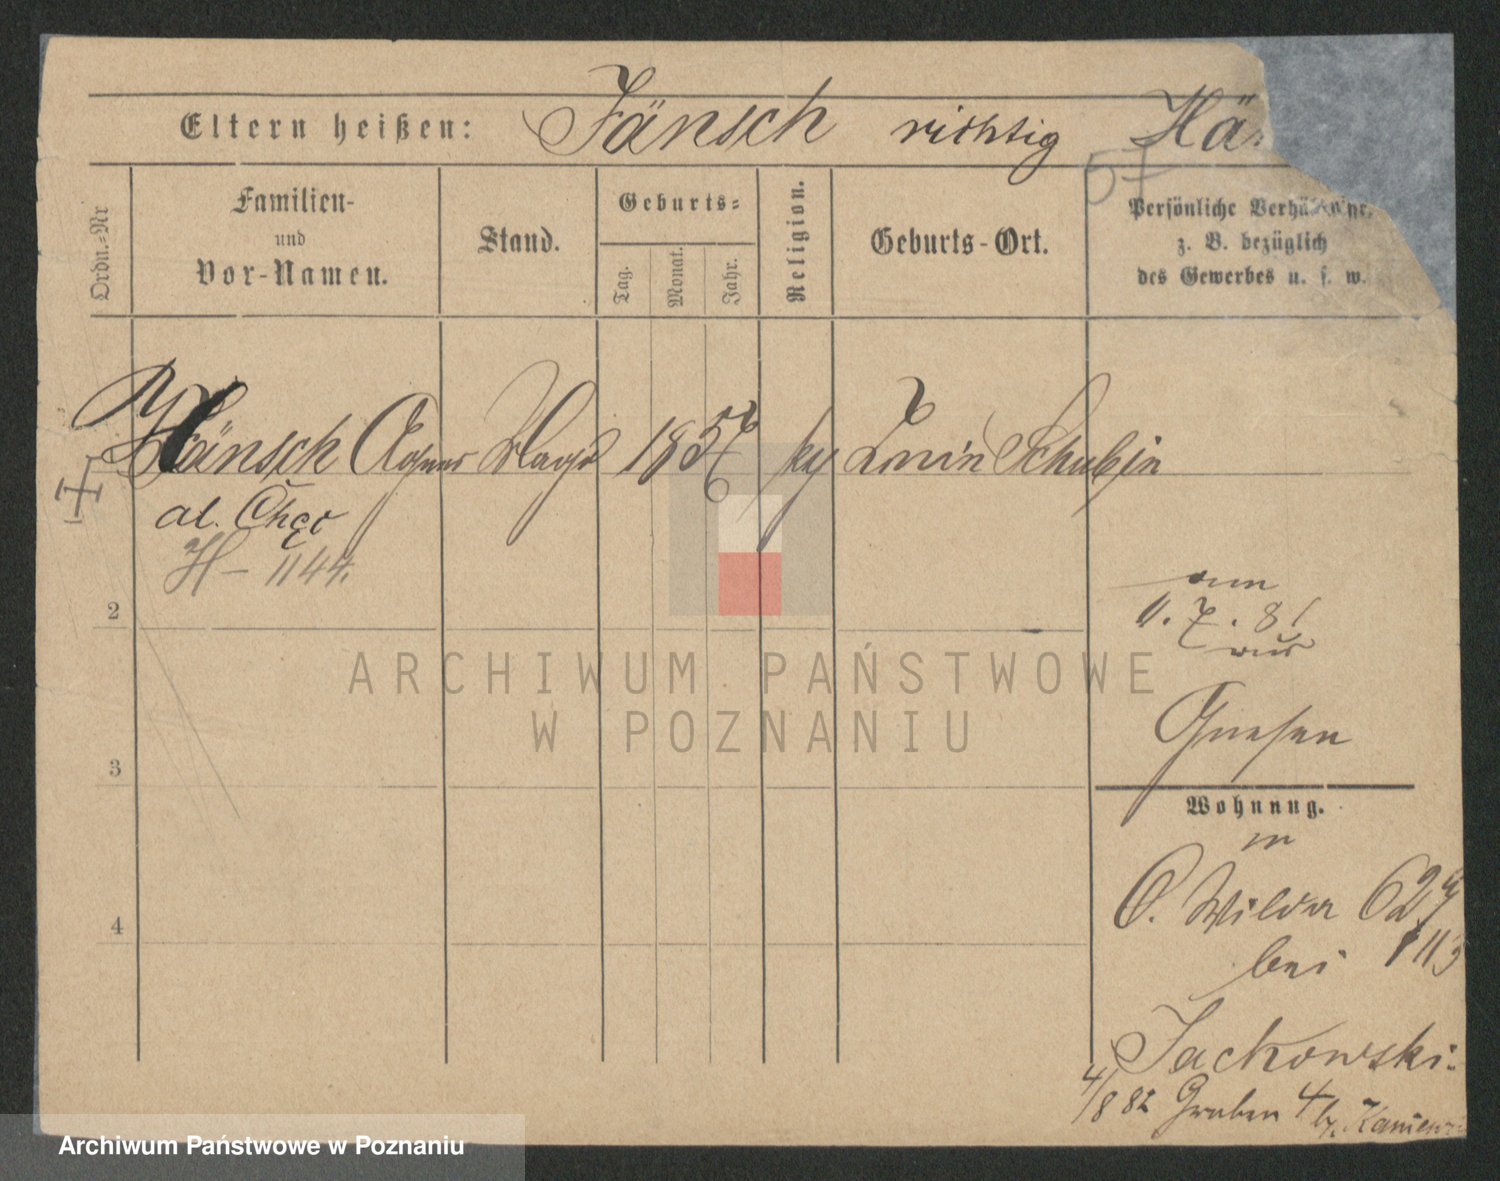 Eltern heißen: Jänsch richtig Hä
57
Ordn.=Nr
Familien-
und
Vor-Namen.
Stand.
Geburts=
Tag.
Monat.
Jahr.
Religion.
Geburts-Ort.
Persönliche
z. B. bezüglich
des Gewerbes u. s. w.
Hänsch Agnes Magd 1857 ky Schubin
al.
H- 1144.
2
3
4
am
1.7.81
aus
Gnesen
Wohnung.
in
O. Wilda 62
bei 113
Jackowski
4/8 82 Graben 4 b/.
ARCHIWUM PAŃSTWOWE
W POZNANIU
Archiwum Państwowe w Poznaniu